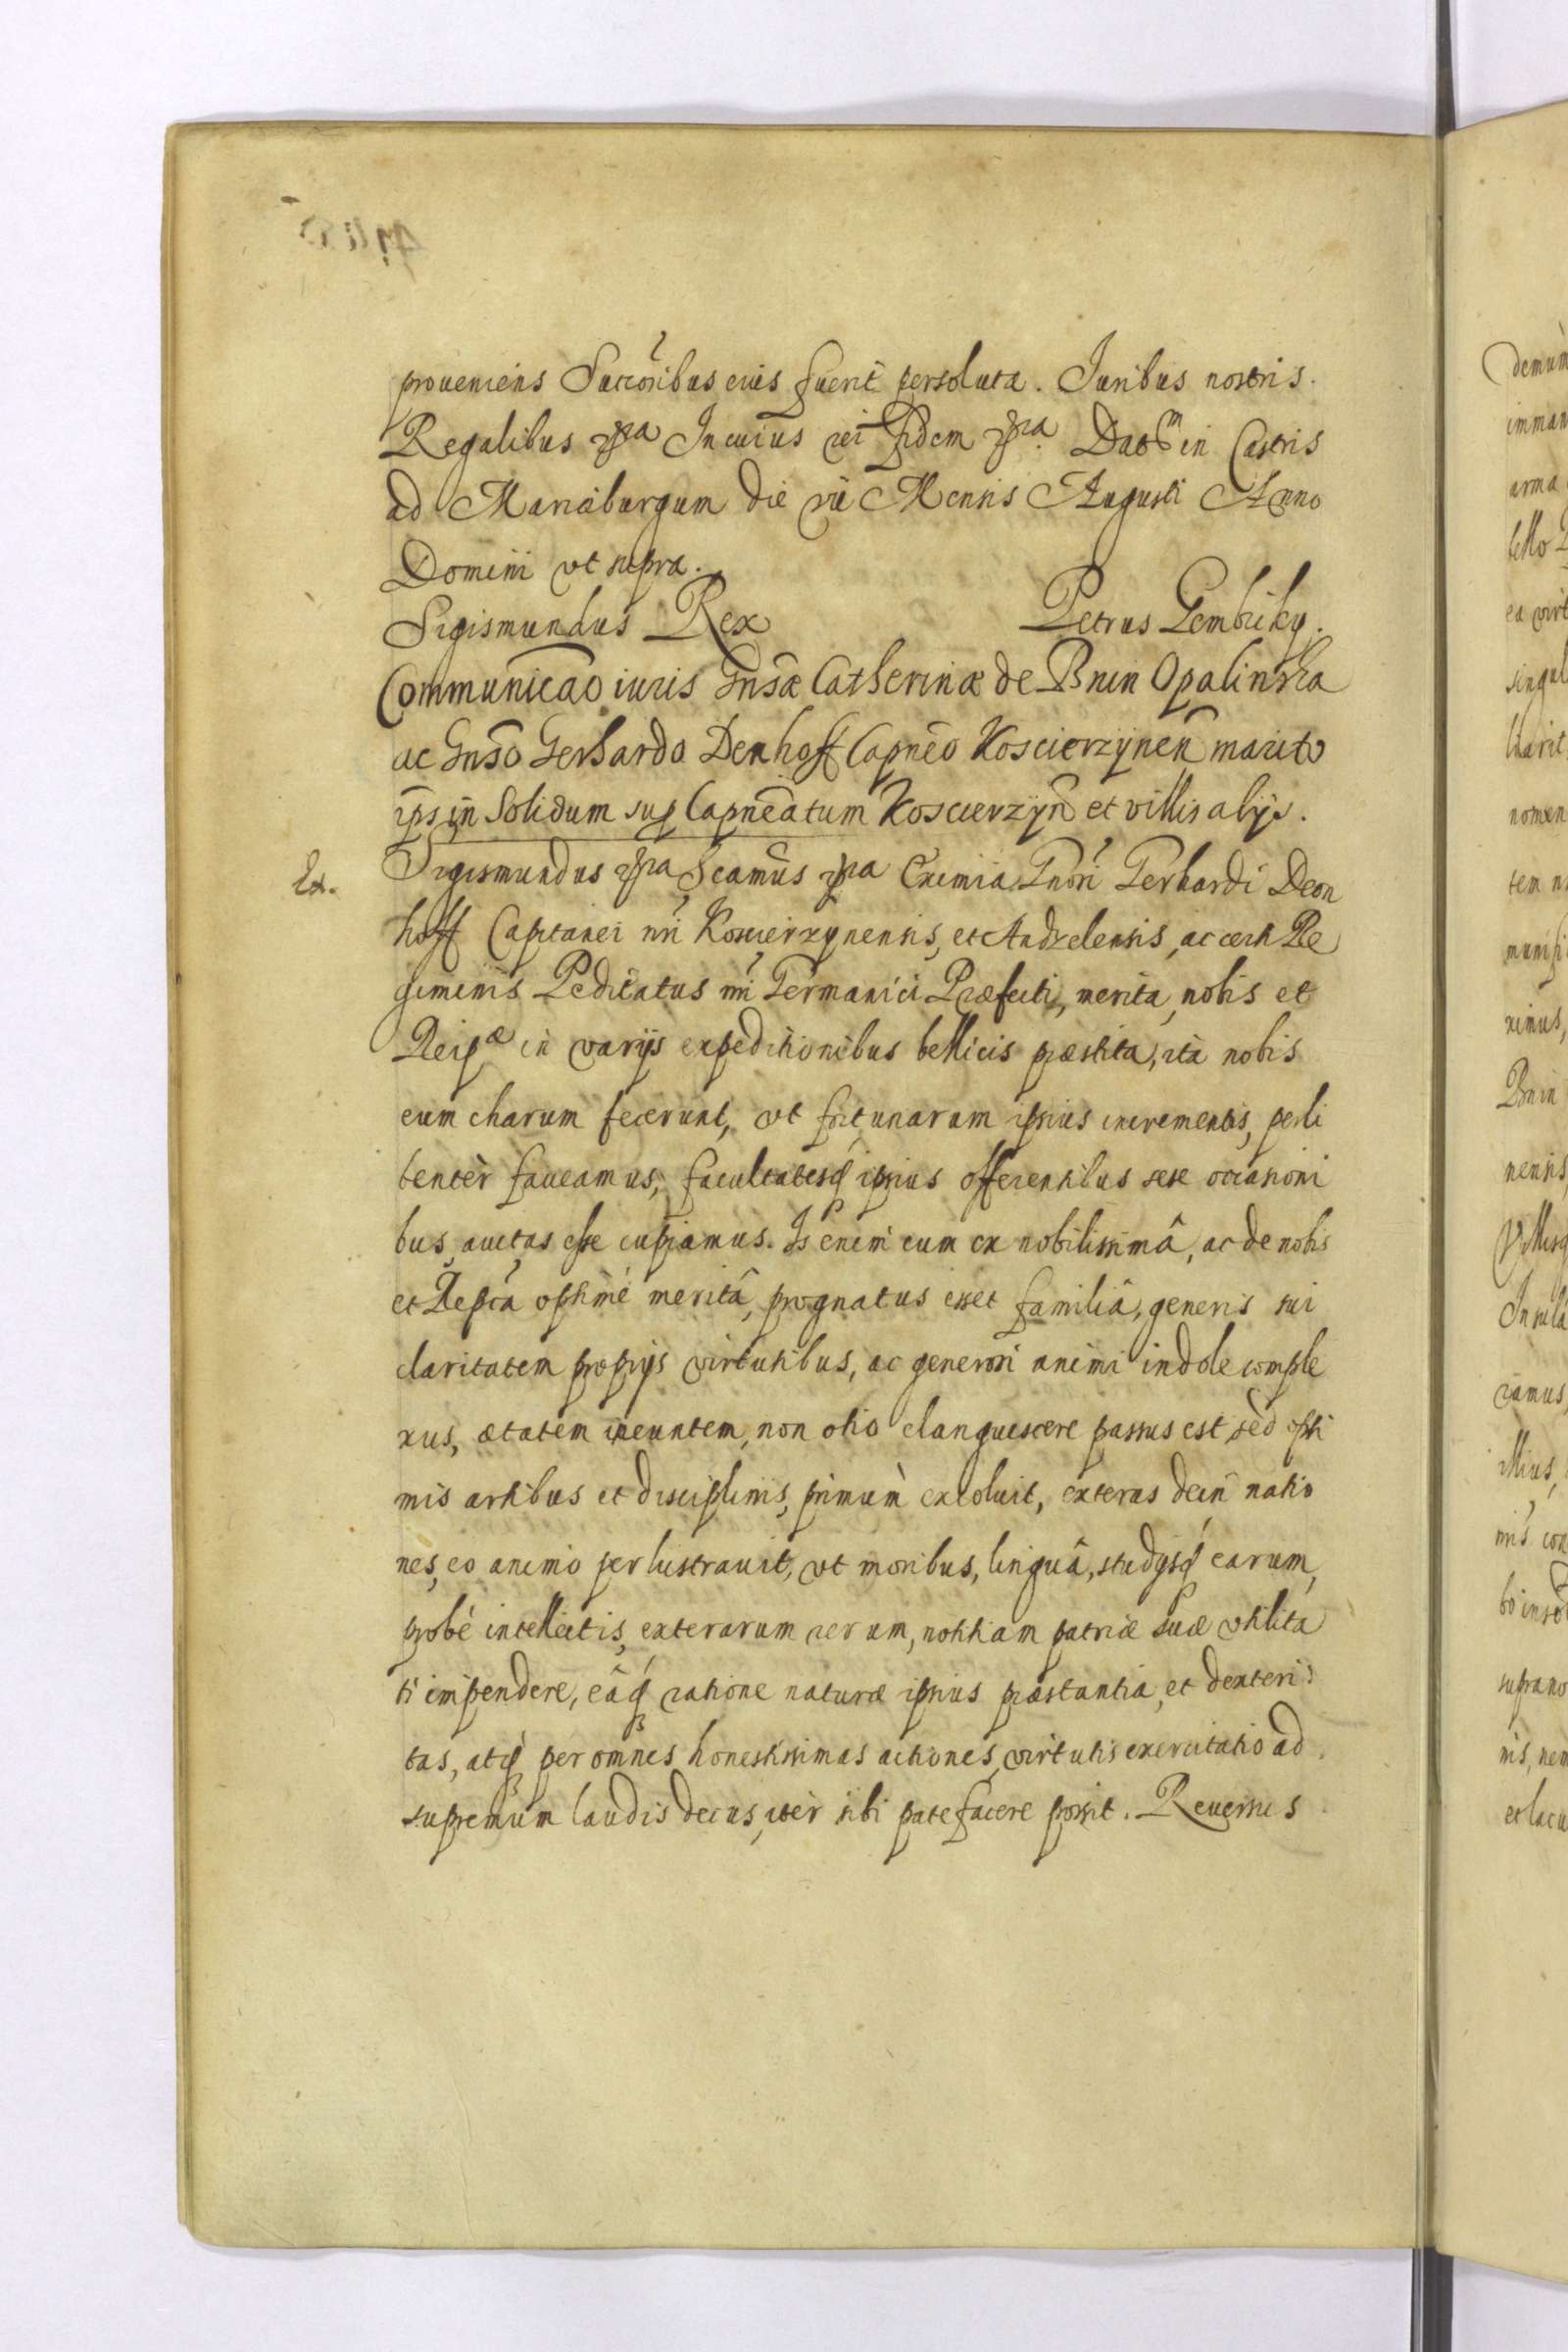 proueniens Succõribus eius fuerit persoluta. Juribus nostris
Regalibus &ra In cuius rei Fidem &ra. Datm in Castris
ad Mariæburgum die vii Mensis Augusti Anno
Domini vt supra.
Sigismundus Rex Petrus Gembicky.
Communicaõ iuris Gnsæ Catherinæ de Bnin Opalinska
ac Gnso Gerhardo Denhoff Capneo Koscierzynen marito
ips in Solidum sup Capneatum Koscierzyn et villis alijs.
Ex. Sigismundus &ra Scamus &ra Eximia Gnosi Gerhardi Deon
hoff Capitanei nri Koscierzynensis, et Andzelensis, ac certi Re
giminis Peditatus nri Germanici Præfecti, merita, nobis et
Reipæ in varijs expeditionibus bellicis præstita, ità nobis
eum charum fecerunt, vt fortunarum ipsius incrementis, perli
bentèr faueamus, facultatesq ipsius offerentibus sese occasioni
bus, auctas esse cupiamus. Is enim cum ex nobilissimâ, ac de nobis
et Repca optimè meritâ, prognatus esset familiâ, generis sui
claritatem proprijs virtutibus, ac generosi animi indole comple
xus, ætatem ineuntem, non otio elanguescere passus est, sed opti
mis artibus et disciplinis, primum excoluit, exteras dein natio
nes, eo animo perlustrauit, vt moribus, linguâ, studijsq earum,
probè intellectis, exterarum rerum, notitiam patriæ suæ vtilita
ti impendere, eâq ratione naturæ ipsius præstantia, et dexteri
tas, atq per omnes honestissimas actiones, virtutis exercitatio ad
supremum laudis decus, iter sibi patefacere possit. Reuersus